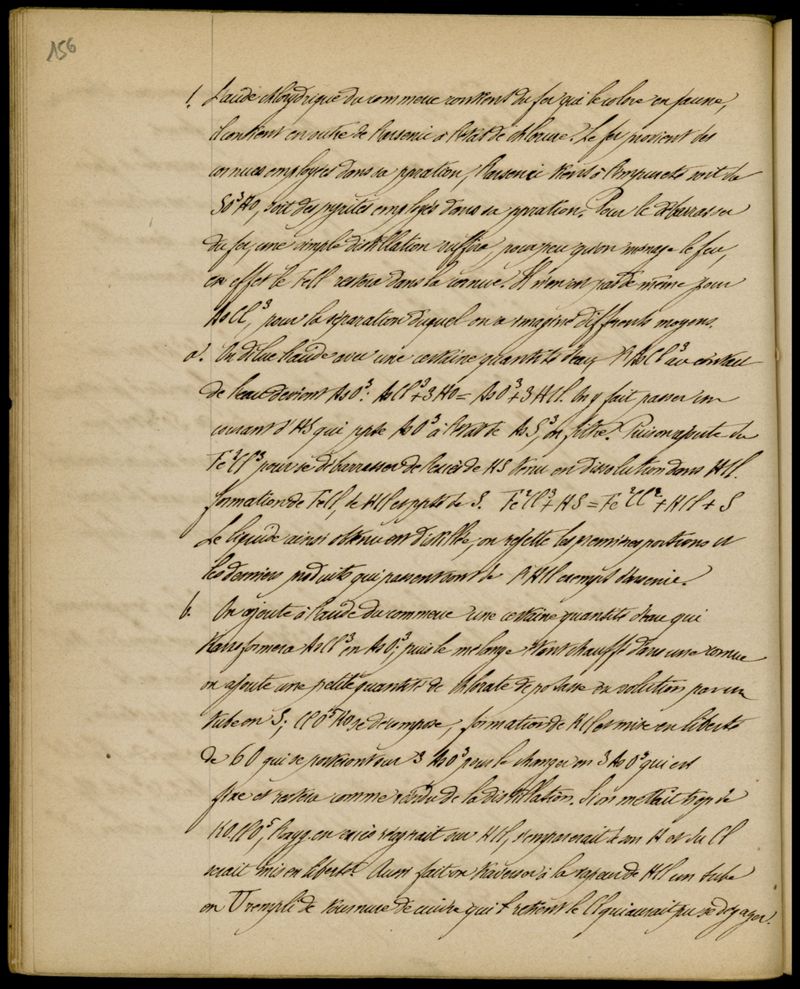 156
1. L'acide chlorhydrique du commerce contient du fer qui le colore en jaune,
il contient en outre de l'arsenic à l'état de chlorure. Le fer provient des
cornues employées dans sa pption, l'arsenic tient à l'impureté soit du
SO³HO, soit des pyrites employés dans sa ppration. Pour le débarrasser
du fer, une simple distillation suffira pour peu qu'on ménage le feu,
en effet le FeCl restera dans la cornue. Il n'en est pas de même pour
AsCl³, pour la séparation duquel on a imaginé différents moyens.
a. On dilue l'acide avec une certaine quantité d'eau AsCl³ au contact
de l'eau devient AsO³: AsCl³+3HO = AsO³+3HCl. On y fait passer un
courant d'HS qui ppte AsO³ à l'état de AsS³, on filtre. Puis on ajoute du
Fe²Cl³ pour se débarrasser de l'excès de HS tenu en dissolution dans HCl.
formation de FeCl, de HCl et ppté de S. Fe²Cl³+HS = Fe²Cl²+HCl+S
Le liquide ainsi obtenu est distillé, on rejette les premières portions et
les derniers produits qui passent sont de HCl exempt d'arsenic.
b. On ajoute à l'acide du commerce une certaine quantité d'eau qui
transformera AsCl³ en AsO³; puis le mélange étant chauffé dans une cornue
on ajoute une petite quantité de chlorate de potasse en solution par un
tube en S; ClO⁵KO se décompose, formation de KCl et mise en liberté
de 6O qui se porteront sur 3 AsO³ pour le changer en 3 AsO⁵ qui est
fixe et restera comme résidu de la distillation. Si on mettait trop de
KO.ClO⁵, l'oxyg. en excès réagirait sur HCl, s'emparerait de son H et du Cl
serait mis en liberté. Aussi fait-on traverser à la vapeur de HCl un tube
en U rempli de tournure de cuivre qui retient le Cl qui aurait pu se dégager.